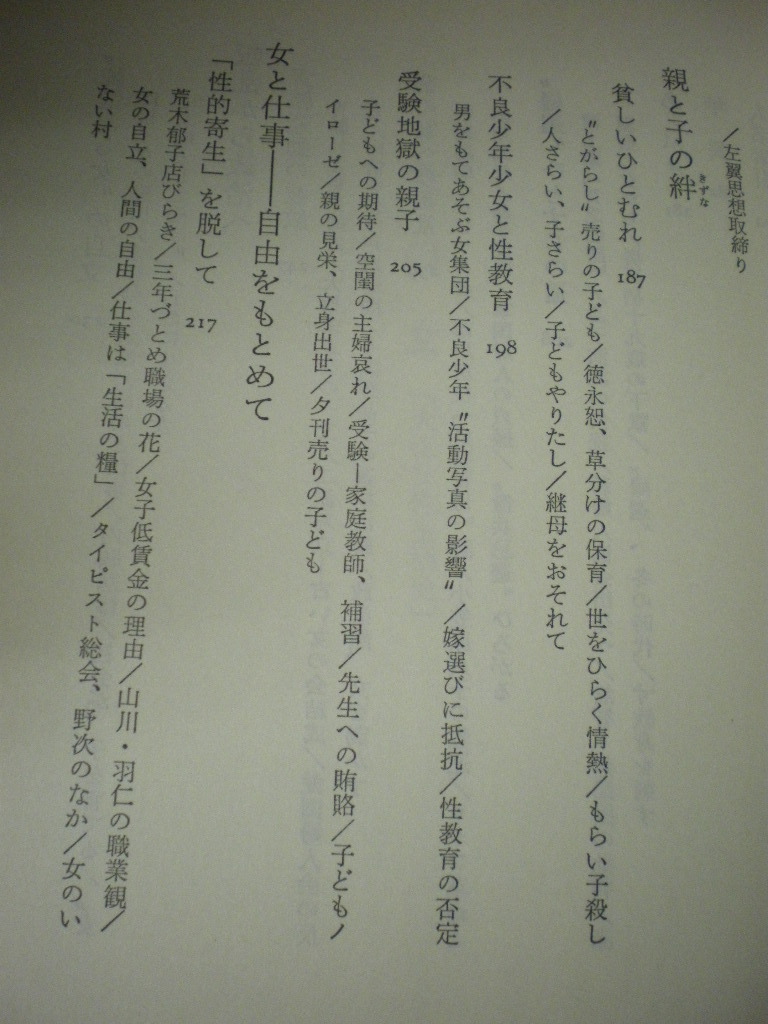 ／左翼思想取締り
親と子の絆
きずな
貧しいひとむれ 187
〝とがらし〟売りの子ども／徳永恕、草分けの保育／世をひらく情熱／もらい子殺し
／人さらい、子さらい／子どもやりたし／継母をおそれて
不良少年少女と性教育 198
男をもてあそぶ女集団／不良少年〝活動写真の影響〟／嫁選びに抵抗／性教育の否定
受験地獄の親子 205
子どもへの期待／空閨の主婦哀れ／受験―家庭教師、補習／先生への賄賂／子どもノ
イローゼ／親の見栄、立身出世／夕刊売りの子ども
女と仕事――自由をもとめて
「性的寄生」を脱して 217
荒木郁子店びらき／三年づとめ職場の花／女子低賃金の理由／山川・羽仁の職業観／
女の自立、人間の自由／仕事は「生活の糧」／タイピスト総会、野次のなか／女のい
ない村